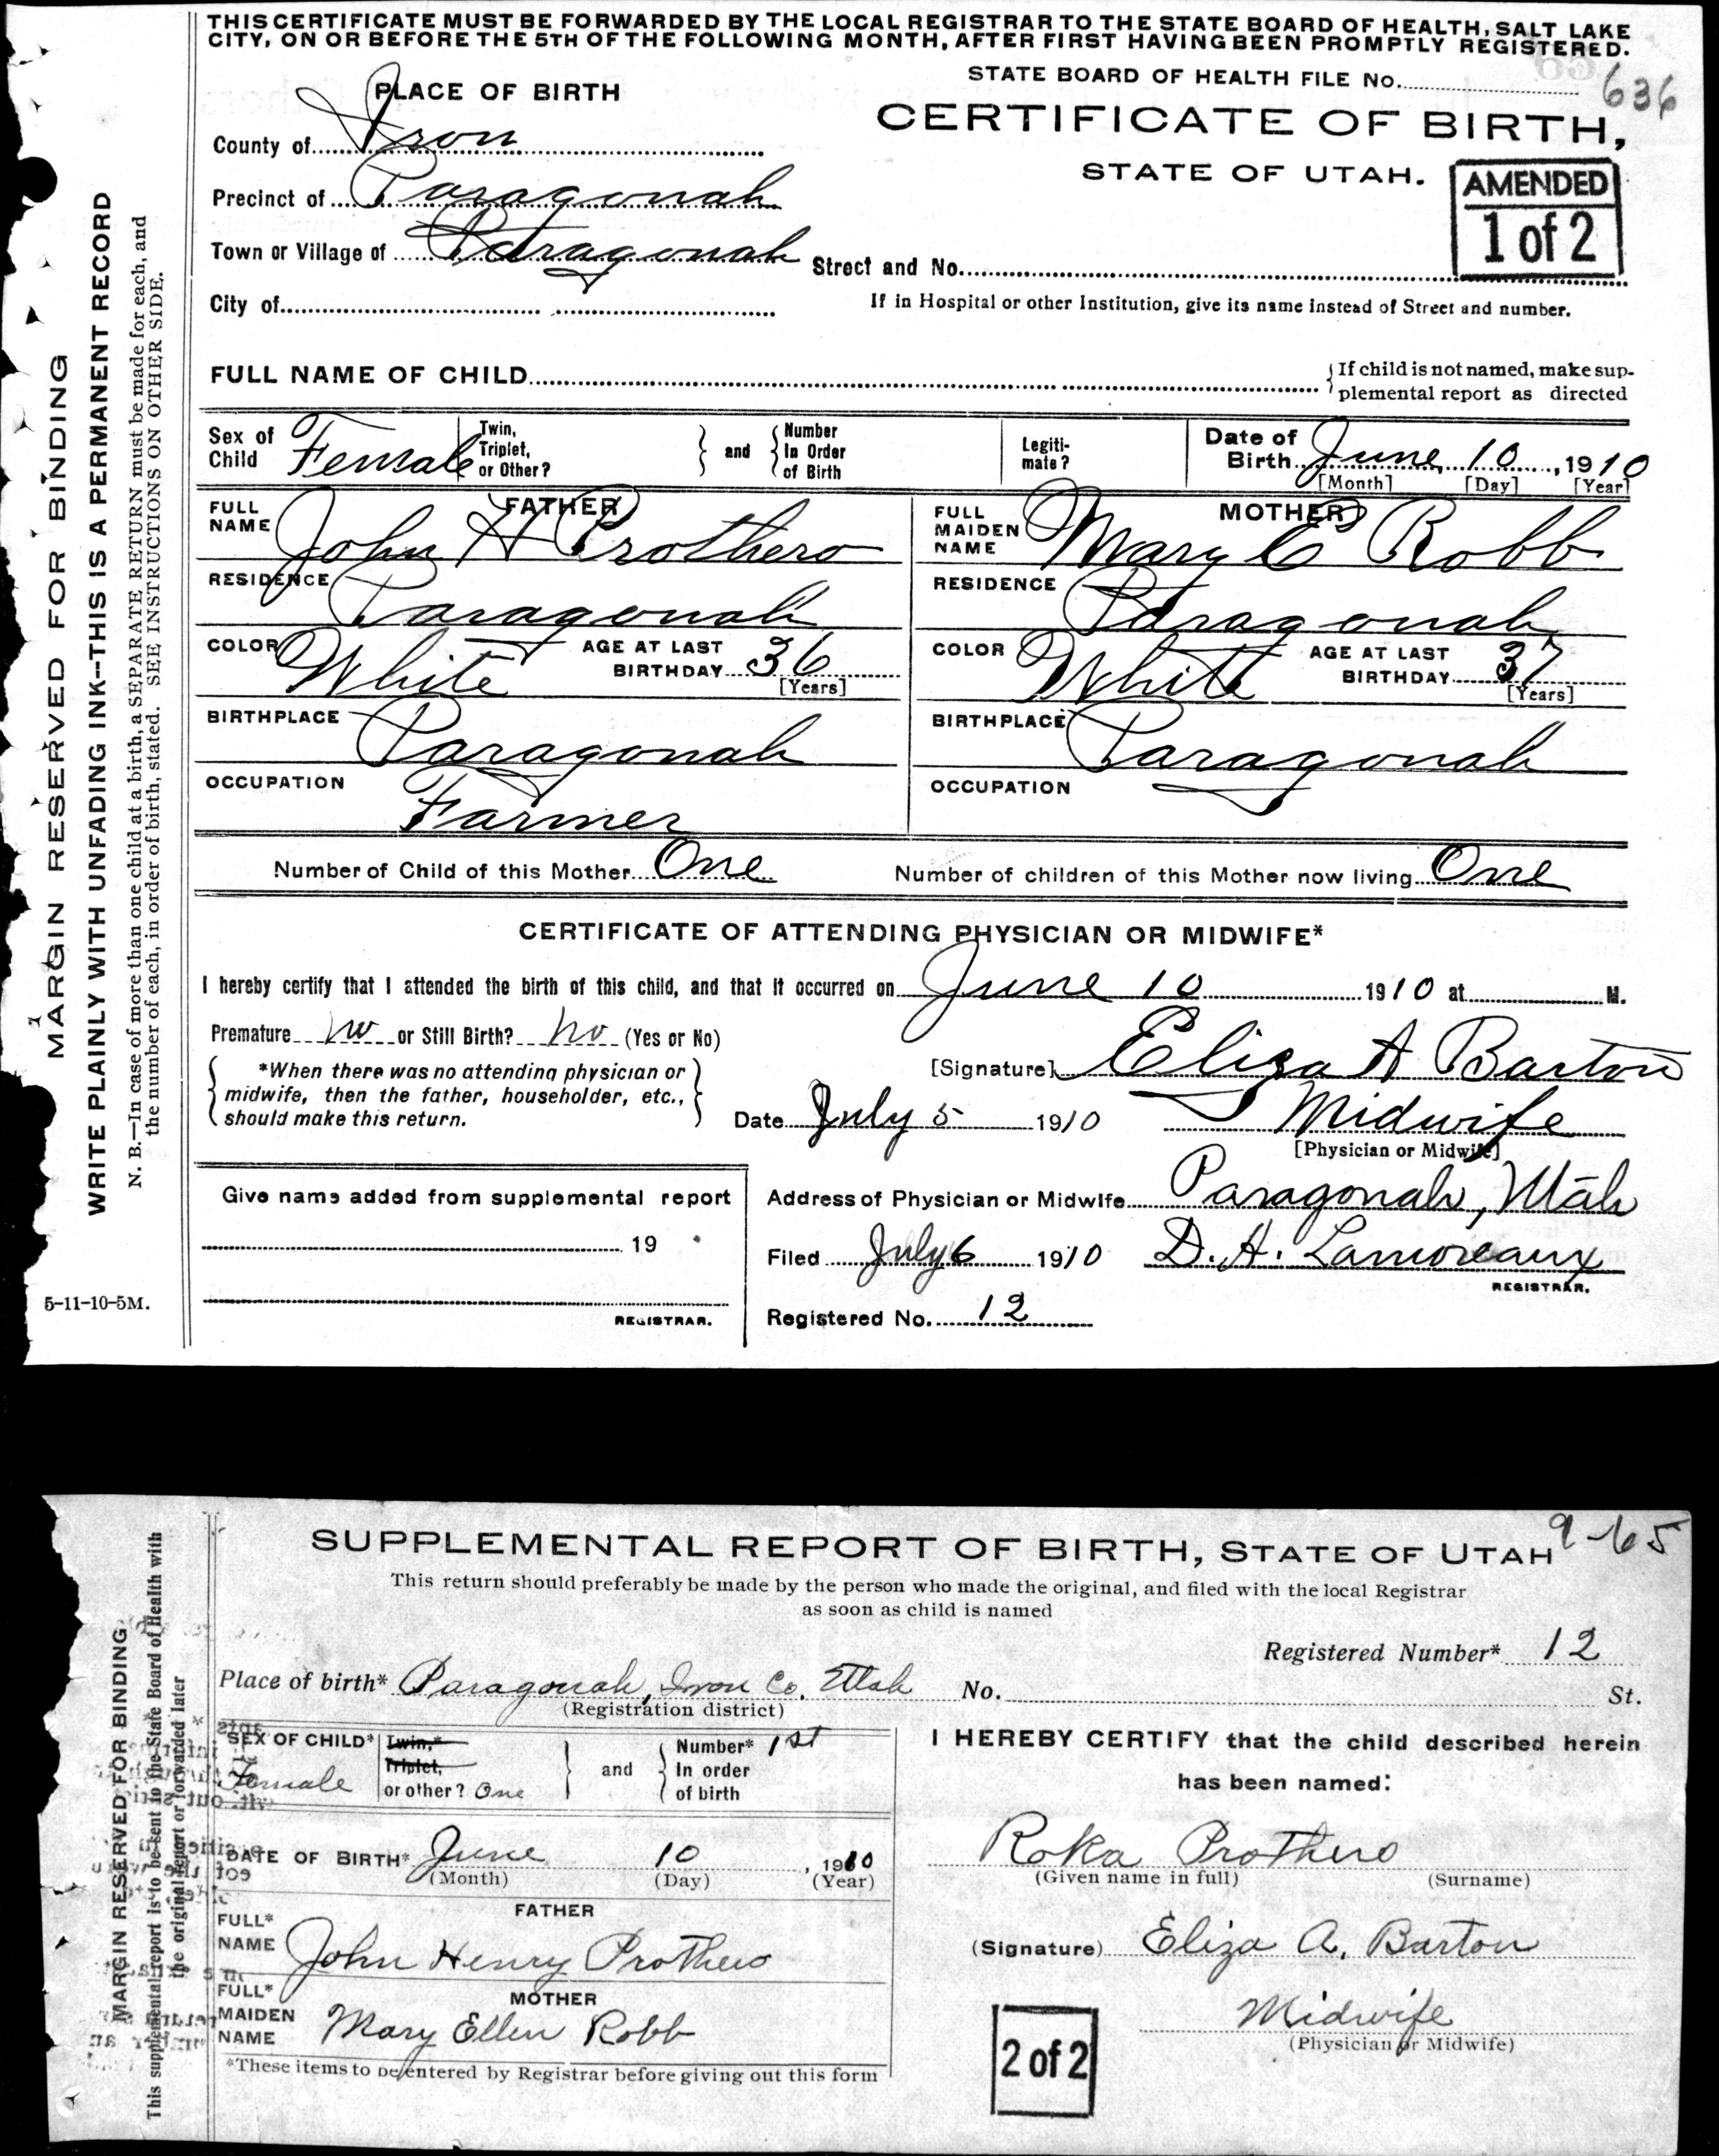 THIS CERTIFICATE MUST BE FORWARDED BY THE LOCAL REGISTRAR TO THE STATE BOARD OF HEALTH, SALT LAKE
CITY, ON OR BEFORE THE 5TH OF THE FOLLOWING MONTH, AFTER FIRST HAVING BEEN PROMPTLY REGISTERED.
STATE BOARD OF HEALTH FILE No. 636
PLACE OF BIRTH
CERTIFICATE OF BIRTH,
County of Iron
STATE OF UTAH.
AMENDED
1 of 2
Precinct of Paragonah
Town or Village of Paragonah Street and No.
City of
If in Hospital or other Institution, give its name instead of Street and number.
FULL NAME OF CHILD
{If child is not named, make sup-
plemental report as directed
Sex of Child Female
Twin, Triplet, or Other?
} and {
Number In Order of Birth
Legiti-mate?
Date of Birth June 10, 1910
[Month] [Day] [Year]
FATHER
FULL NAME John H Prothero
MOTHER
FULL MAIDEN NAME Mary E Robb
RESIDENCE Paragonah
RESIDENCE Paragonah
COLOR White AGE AT LAST BIRTHDAY 36 [Years]
COLOR White AGE AT LAST BIRTHDAY 37 [Years]
BIRTHPLACE Paragonah
BIRTHPLACE Paragonah
OCCUPATION Farmer
OCCUPATION
Number of Child of this Mother One Number of children of this Mother now living One
CERTIFICATE OF ATTENDING PHYSICIAN OR MIDWIFE*
I hereby certify that I attended the birth of this child, and that it occurred on June 10 1910 at M.
Premature no or Still Birth? no (Yes or No)
{*When there was no attending physician or
midwife, then the father, householder, etc.,
should make this return.}
[Signature] Eliza A Barton
Date July 5 1910 Midwife
[Physician or Midwife]
Give name added from supplemental report
19
REGISTRAR.
Address of Physician or Midwife Paragonah, Utah
Filed July 6 1910 D. A. Lamoreaux
REGISTRAR.
Registered No. 12
MARGIN RESERVED FOR BINDING
WRITE PLAINLY WITH UNFADING INK--THIS IS A PERMANENT RECORD
N. B.—In case of more than one child at a birth, a SEPARATE RETURN must be made for each, and
the number of each, in order of birth, stated. SEE INSTRUCTIONS ON OTHER SIDE.
5-11-10-5M.
SUPPLEMENTAL REPORT OF BIRTH, STATE OF UTAH
9-65
This return should preferably be made by the person who made the original, and filed with the local Registrar
as soon as child is named
Registered Number* 12
Place of birth* Paragonah, Iron Co. Utah No. St.
(Registration district)
SEX OF CHILD* Female
Twin,* Triplet, or other? One
} and {
Number* 1st In order of birth
DATE OF BIRTH* June 10, 1910
(Month) (Day) (Year)
FATHER
FULL* NAME John Henry Prothero
MOTHER
FULL* MAIDEN NAME Mary Ellen Robb
*These items to be entered by Registrar before giving out this form
I HEREBY CERTIFY that the child described herein
has been named:
Roka Prothero
(Given name in full) (Surname)
(Signature) Eliza A. Barton
Midwife
(Physician or Midwife)
2 of 2
MARGIN RESERVED FOR BINDING
This supplemental report is to be sent to the State Board of Health with
the original report or forwarded later